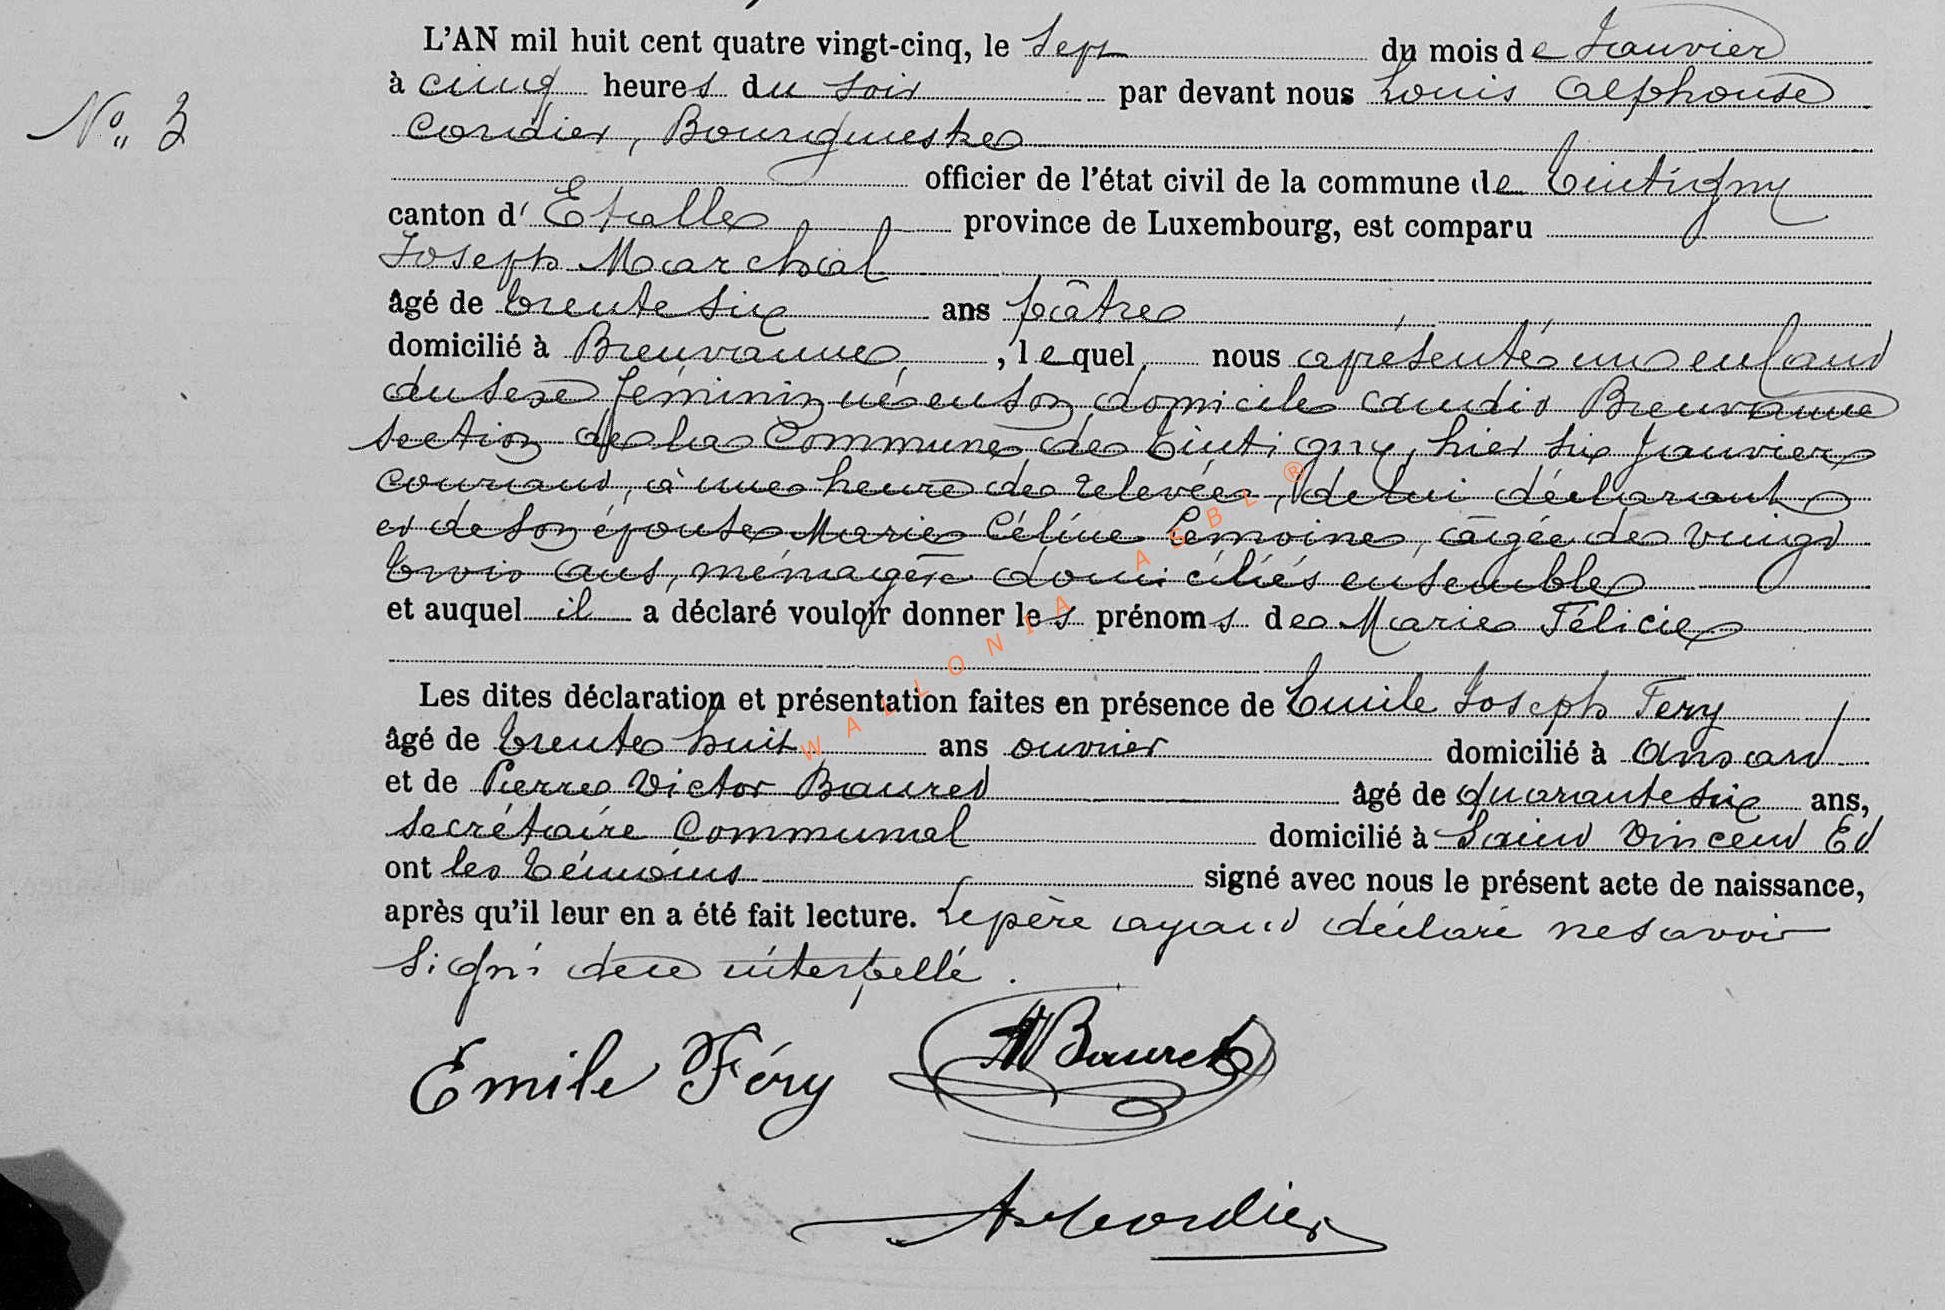 L'AN mil huit cent quatre vingt-cinq, le Sept du mois de Janvier
N° 3
à cinq heures du soir par devant nous Louis Alphonse
Cordier, Bourgmestre
officier de l'état civil de la commune de Tintigny
canton d' Etalle province de Luxembourg, est comparu
Joseph Marchal
âgé de trente six ans pâtre
domicilié à Breuvanne, , lequel nous a présenté un enfant
du sexe féminin né en son domicile audit Breuvanne
section de la Commune de Tintigny, hier six Janvier
courant, à une heure de relevée, de lui déclarant
et de son épouse Marie Céline Lemoine, âgée de vingt
trois ans, ménagère domiciliés ensemble
et auquel il a déclaré vouloir donner les prénoms de Marie Félicie
Les dites déclaration et présentation faites en présence de Emile Joseph Fery
âgé de trente huit ans ouvrier domicilié à Ansart
et de Pierre Victor Bauret âgé de quarante six ans,
secrétaire Communal domicilié à Saint Vincent Et
ont les témoins signé avec nous le présent acte de naissance,
après qu'il leur en a été fait lecture. Le père ayant déclaré ne savoir
signé de ce interpellé.
Emile Féry Bauret
Cordier
WALLONIA ASBL ®